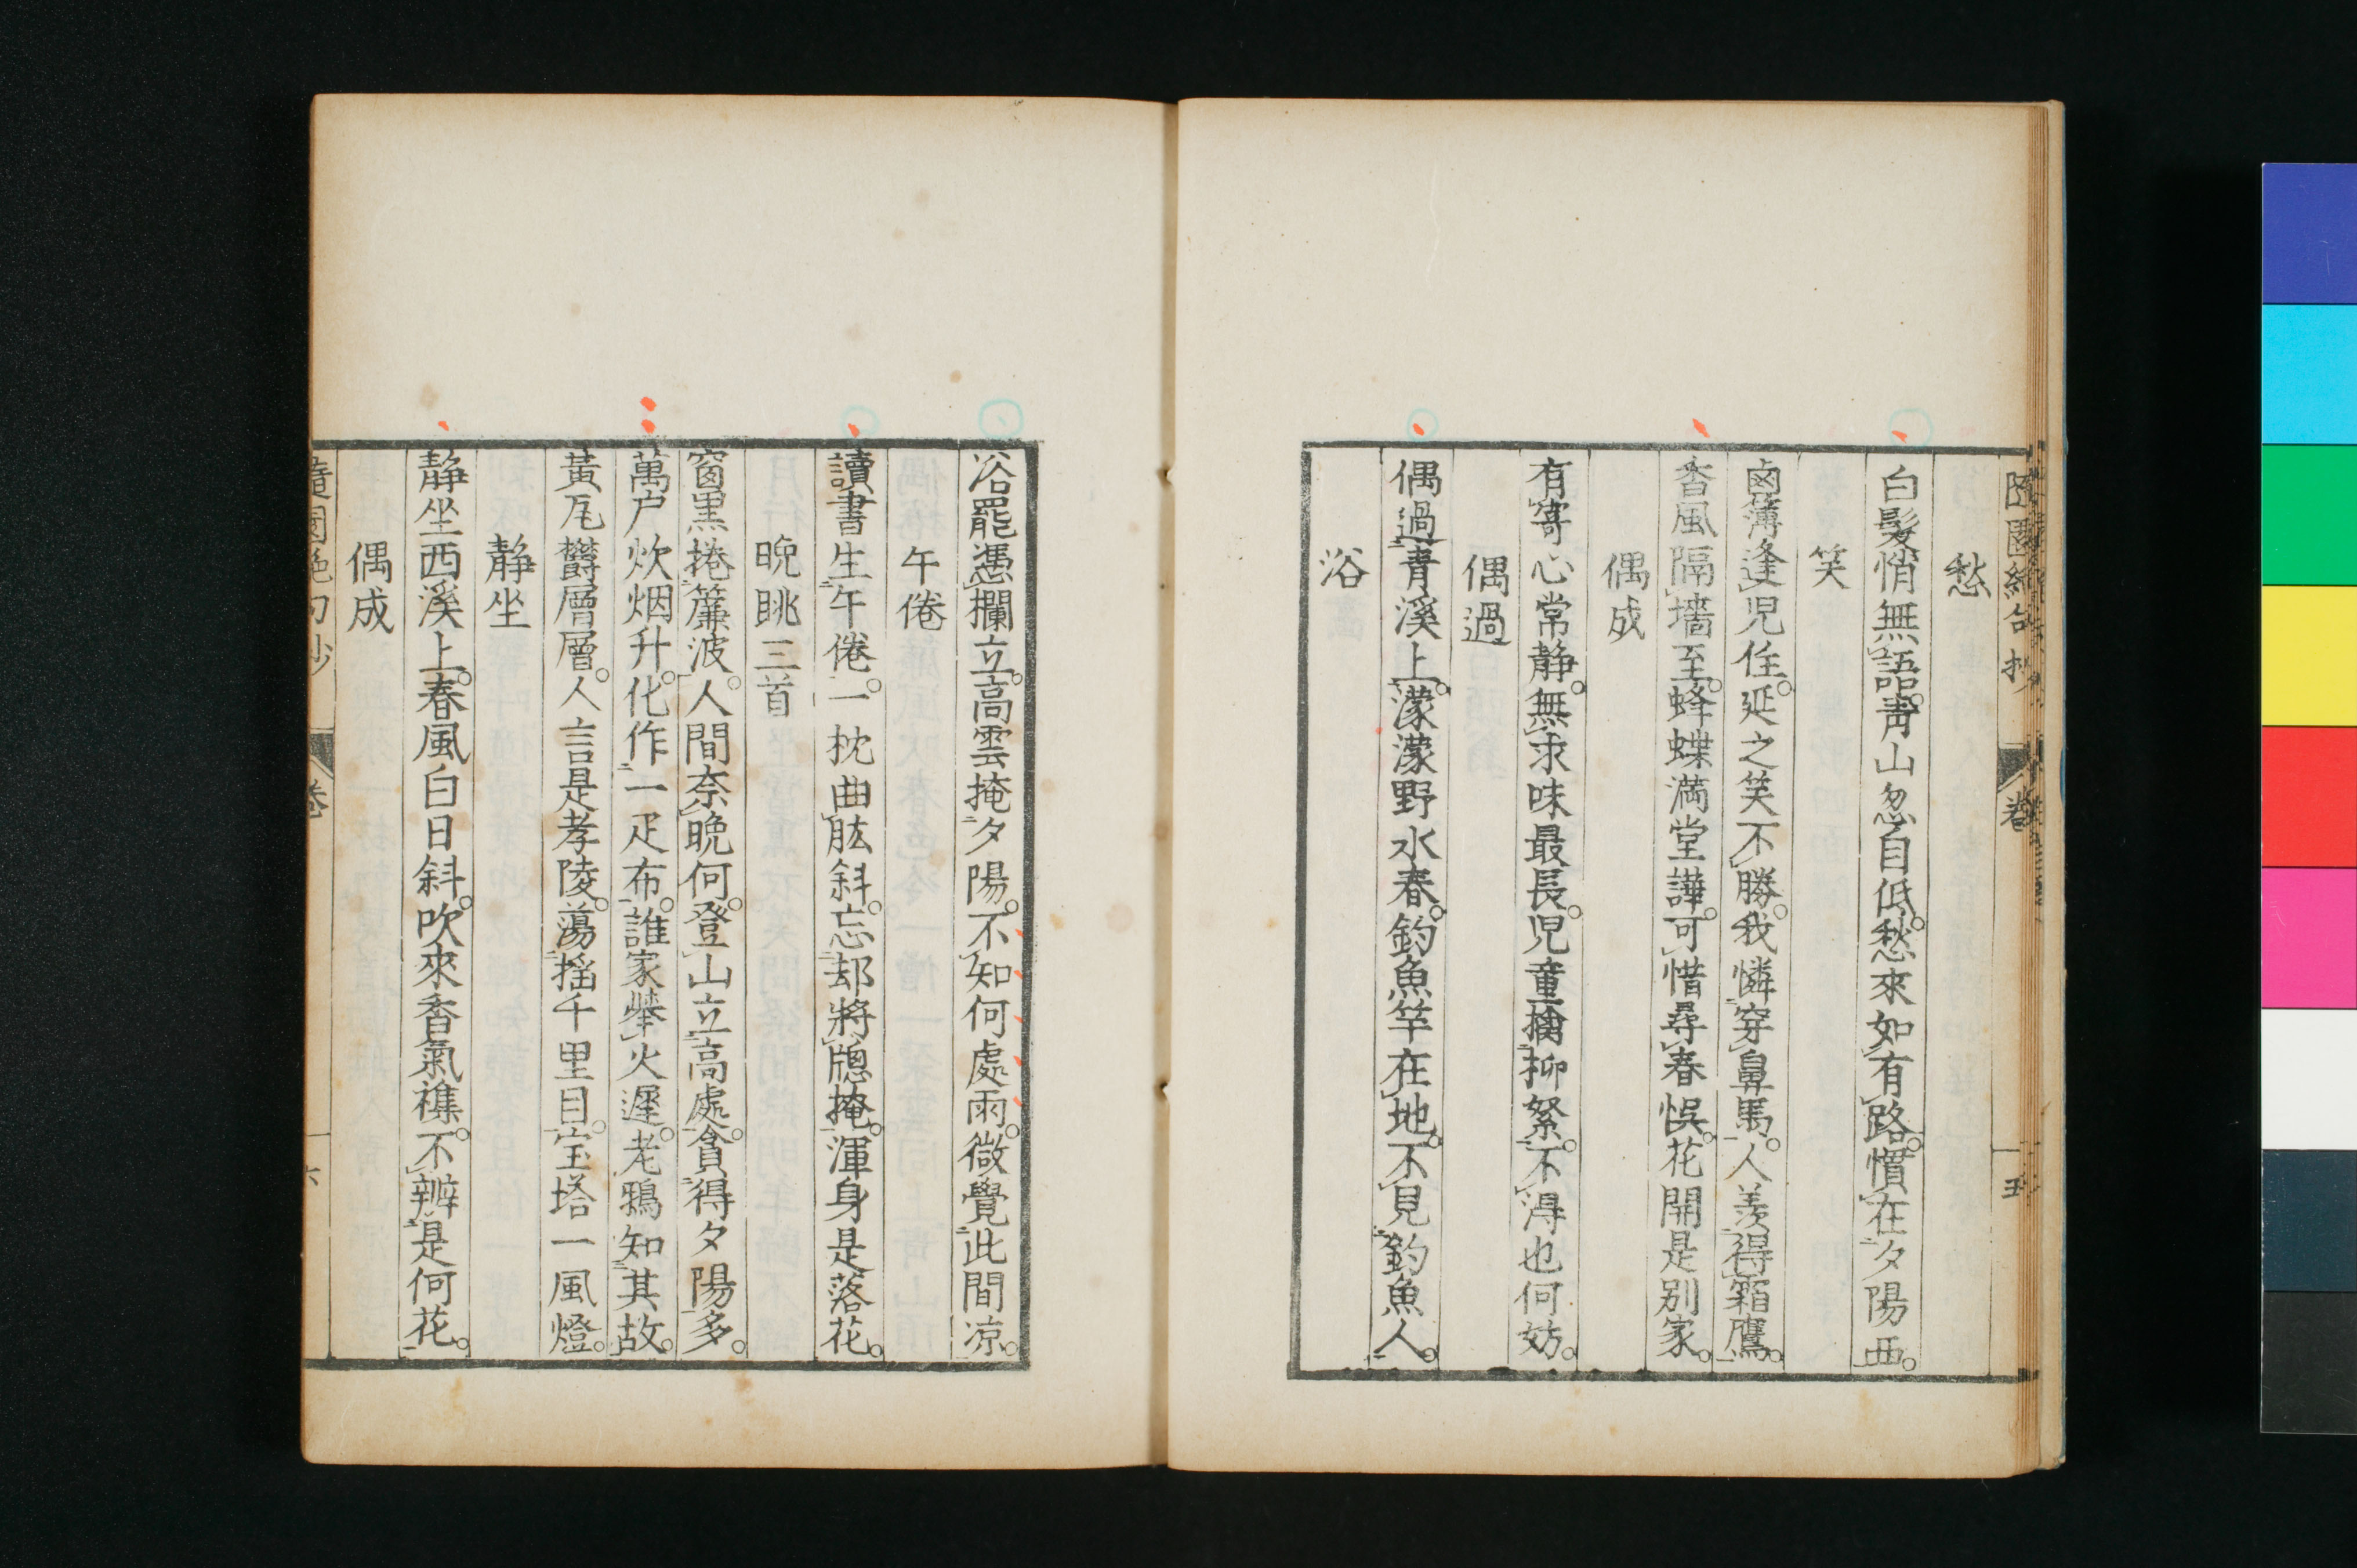 愁
白髮悄無語。靑山忽自低。愁來如有路。慣在夕陽西。
笑
鹵簿逢児住。延之笑不勝。我憐穿鼻馬。人羨得霜鷹。
香風隔墻至。蜂蝶満堂譁。可惜尋春悞。花開是别家。
偶成
有寄心常静。無求味最長。児童擒柳絮。不得也何妨。
偶過
偶過青溪上。濛濛野水春。釣魚竿在地。不見釣魚人。
浴
浴罷憑欄立。高雲掩夕陽。不知何處雨。微覺此間凉。
午倦
讀書生午倦。一枕曲肱斜。忘却將牕掩。渾身是落花。
晩眺三首
窗黒捲簾波。人間奈晩何。登山立高處。貪得夕陽多。
萬户炊烟升。化作一疋布。誰家擧火遲。老鴉知其故。
黃瓦欝層層。人言是孝陵。蕩揺千里目。宝塔一風燈。
静坐
静坐西溪上。春風白日斜。吹來香氣襍。不辨是何花。
偶成
隨園絶句抄 卷 六